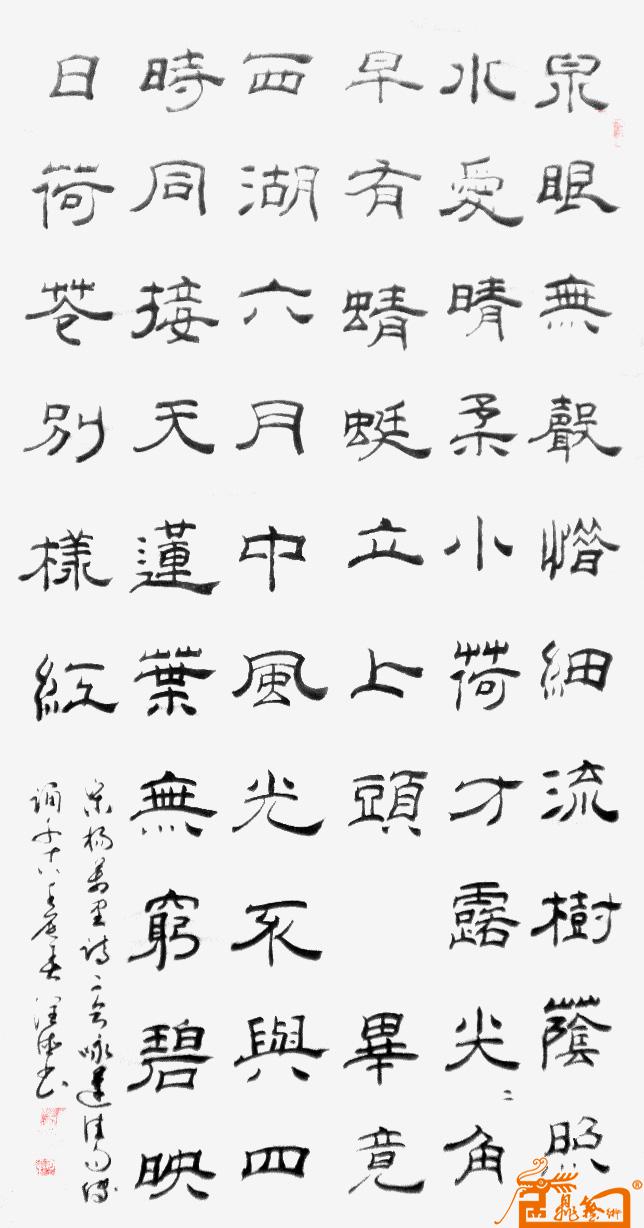 泉眼無聲惜細流樹蔭照
水愛晴柔小荷才露尖〻角
早有蜻蜓立上頭 畢竟
西湖六月中風光不與四
時同接天蓮葉無窮碧映
日荷花別樣紅
宋楊萬里詩二首咏蓮
壬辰春